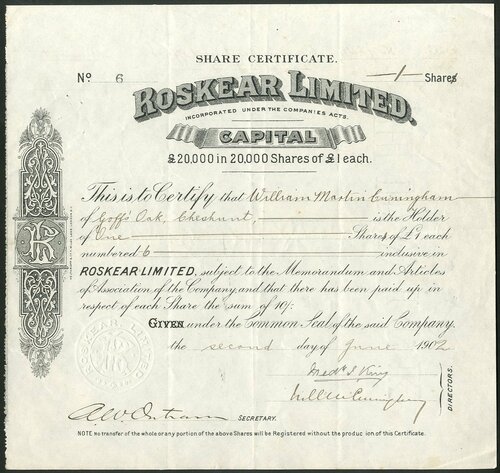 SHARE CERTIFICATE.
No 6 1 Shares
ROSKEAR LIMITED.
INCORPORATED UNDER THE COMPANIES ACTS.
CAPITAL
£20,000 in 20,000 Shares of £1 each.
This is to Certify that William Martin Cuningham
of Goff's Oak, Cheshunt, is the Holder
of One Shares of £1 each
numbered 6 inclusive in
ROSKEAR LIMITED, subject to the Memorandum and Articles
of Association of the Company, and that there has been paid up in
respect of each Share the sum of 10/-
GIVEN under the Common Seal of the said Company,
the second day of June 1902
Fredk J King
Will M Cuningham
DIRECTORS.
A.W. Outram SECRETARY.
NOTE No transfer of the whole or any portion of the above Shares will be Registered without the production of this Certificate.
R
ROSKEAR LIMITED